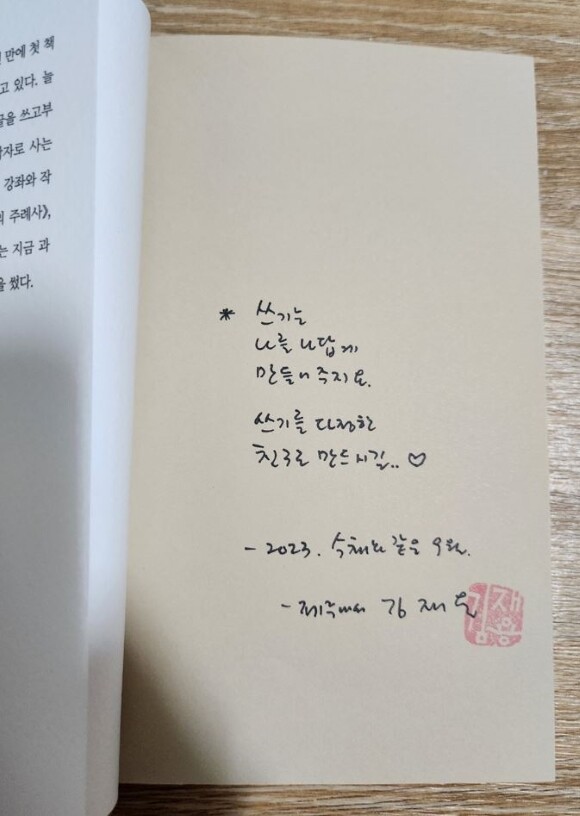 만에 첫 책
고 있다. 늘
글을 쓰고부
자로 사는
강좌와 작
의 주례사》,
는 지금 과
을 썼다.
* 쓰기는
나를 나답게
만들어주지요.
쓰기를 다정한
친구로 만드시길.. ♡
- 2023. 수채화 같은 9월.
- 제주에서 김재용
김재용